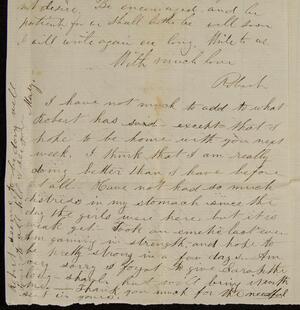 not desire. Be encouraged and be
patient for we shall both be well soon
I will write again ere long. Write to us
With much love
Robert
I have not much to add to what
Robert has said - except that I
hope to be home with you next
week. I think that I am really
doing better than I have before
at all. Have not had so much
distress in my stomach since the
day the girls were here but it is
weak yet. Took an emetic last eve.
Am gaining in strength, and hope to
be pretty strong in a few days. Am
very sorry I forgot to give Sarah the
long shaker but will bring it with
me. Thank you much for the needful
sent in yours.